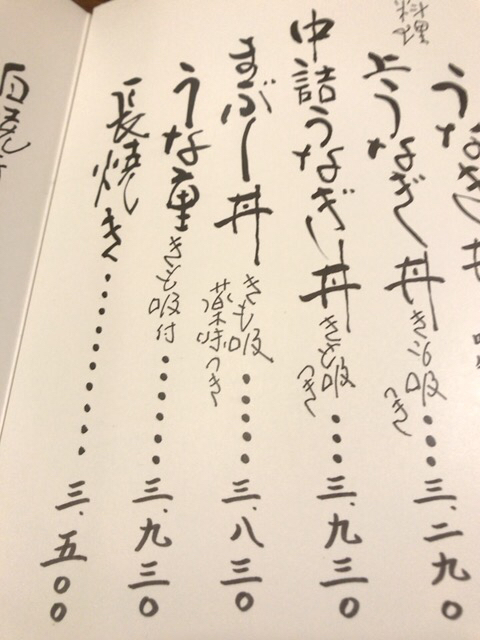 料理
上うなぎ丼 きも吸つき・・・三、二九〇
中詰うなぎ丼 きも吸つき・・・三、九三〇
まぶし丼 きも吸 薬味つき・・・・・三、八三〇
うな重 きも吸付・・・・・・三、九三〇
長焼き・・・・・・・・・・三、五〇〇